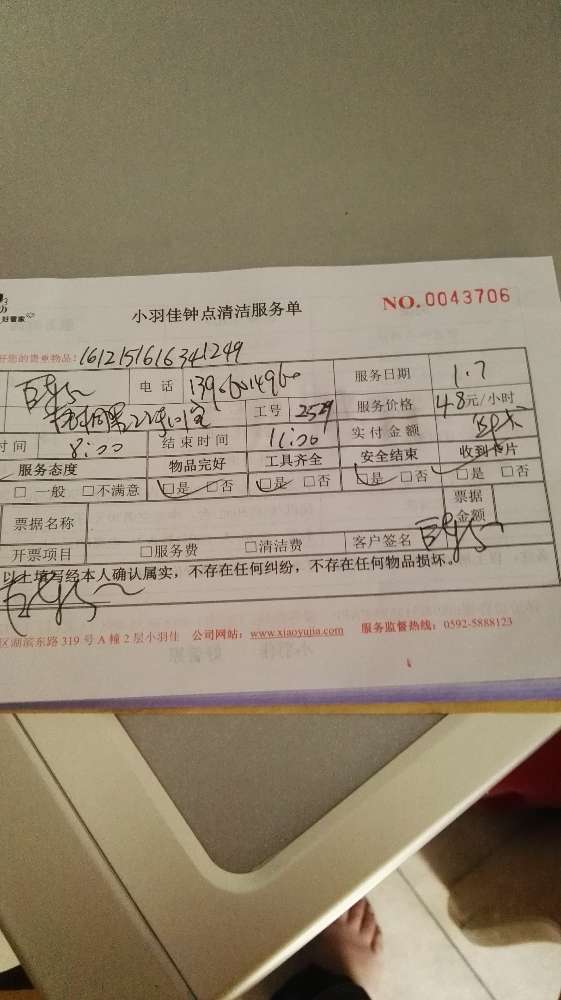 好管家
小羽佳钟点清洁服务单
NO.0043706
好您的贵重物品:1612151616341249
电话 服务日期 1.7
工号 2529 服务价格 48元/小时
时间 8:00 结束时间 11:00 实付金额
服务态度 物品完好 工具齐全 安全结束 收到卡片
□一般 □不满意 □是 □否 □是 □否 □是 □否 □是 □否
票据名称 票据金额
开票项目 □服务费 □清洁费 客户签名
以上填写经本人确认属实,不存在任何纠纷,不存在任何物品损坏。
区湖滨东路 319 号 A 幢 2 层小羽佳 公司网站:www.xiaoyujia.com 服务监督热线:0592-5888123